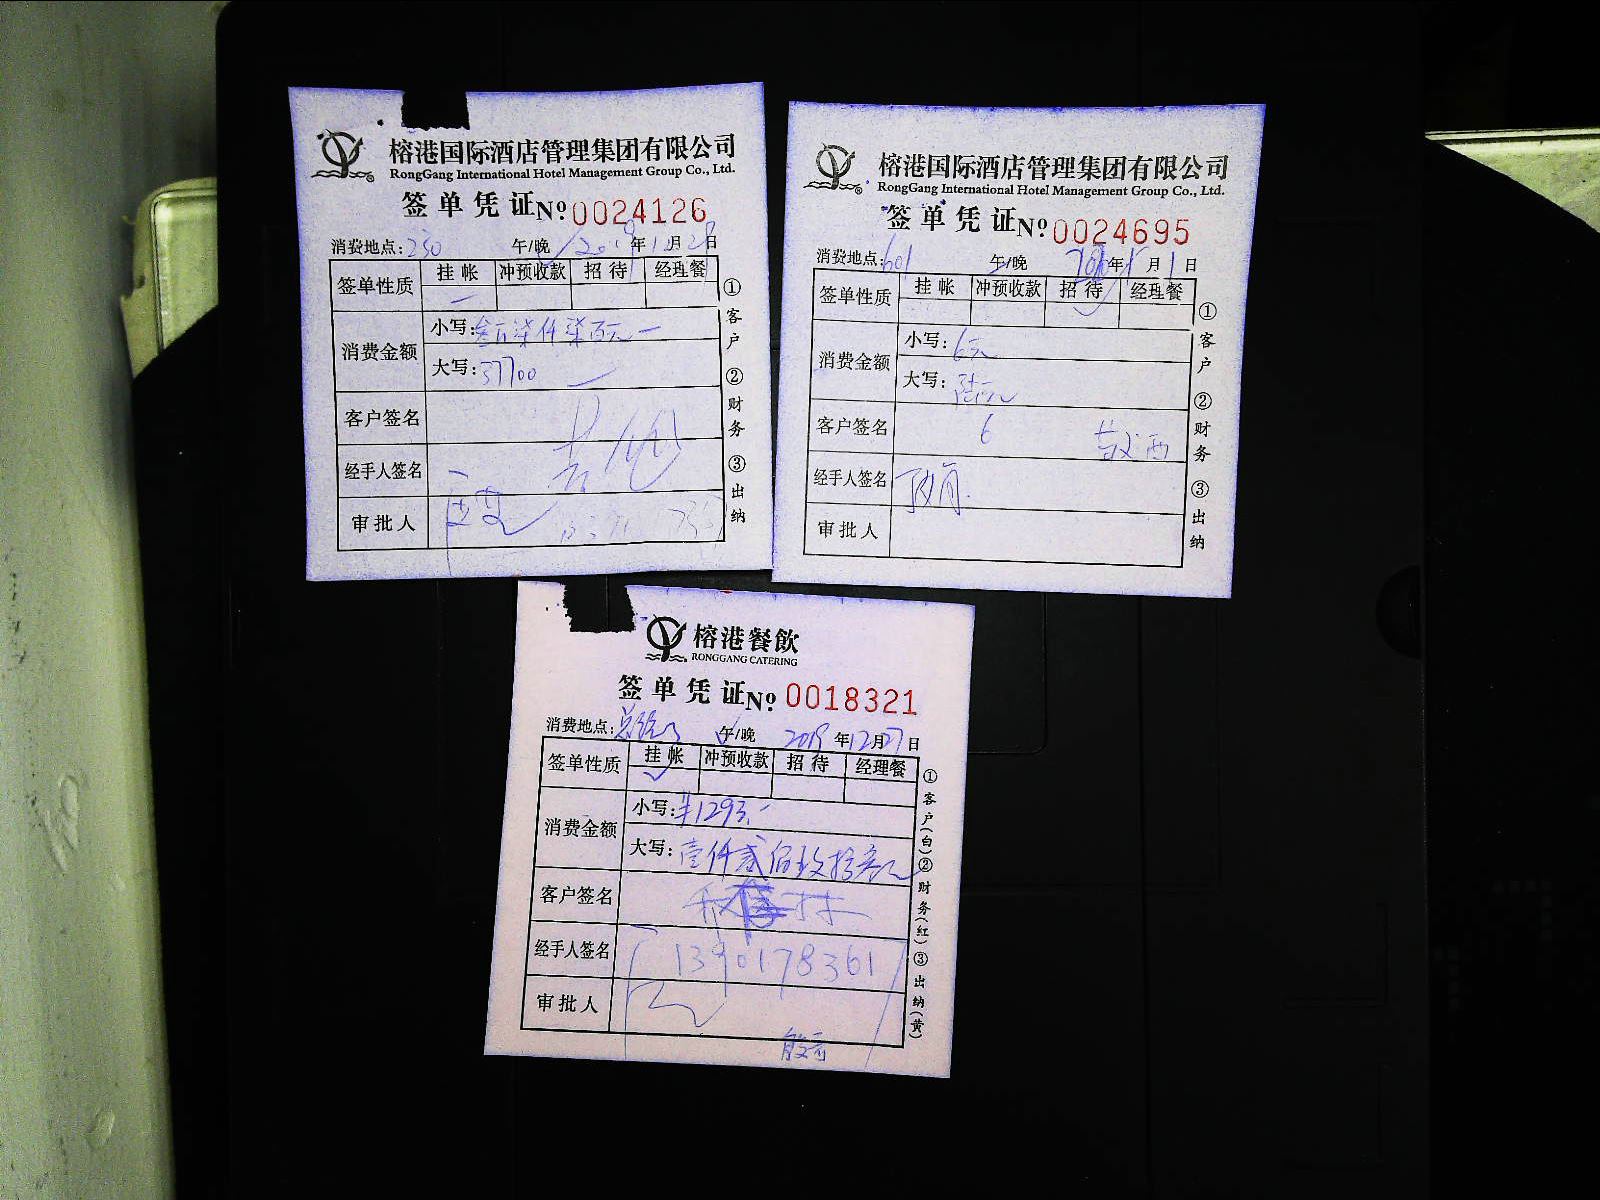 榕港国际酒店管理集团有限公司
RongGang International Hotel Management Group Co., Ltd.
签单凭证 Nº 0024126
消费地点:230 午/晚 2019年12月28日
签单性质 挂帐 冲预收款 招待 经理餐
消费金额 小写:叁万柒仟柒百元
大写:37700
客户签名
经手人签名
审批人
①客户 ②财务 ③出纳
榕港国际酒店管理集团有限公司
RongGang International Hotel Management Group Co., Ltd.
签单凭证 Nº 0024695
消费地点:601 午/晚 年 月1日
签单性质 挂帐 冲预收款 招待 经理餐
消费金额 小写:6元
大写:陆元
客户签名 6
经手人签名
审批人
①客户 ②财务 ③出纳
榕港餐飲
RONGGANG CATERING
签单凭证 Nº 0018321
消费地点: 午/晚 2019年12月27日
签单性质 挂帐 冲预收款 招待 经理餐
消费金额 小写:¥1293.-
大写:壹仟贰佰玖拾叁元
客户签名
经手人签名 13901178361
审批人
①客户(白)②财务(红)③出纳(黄)